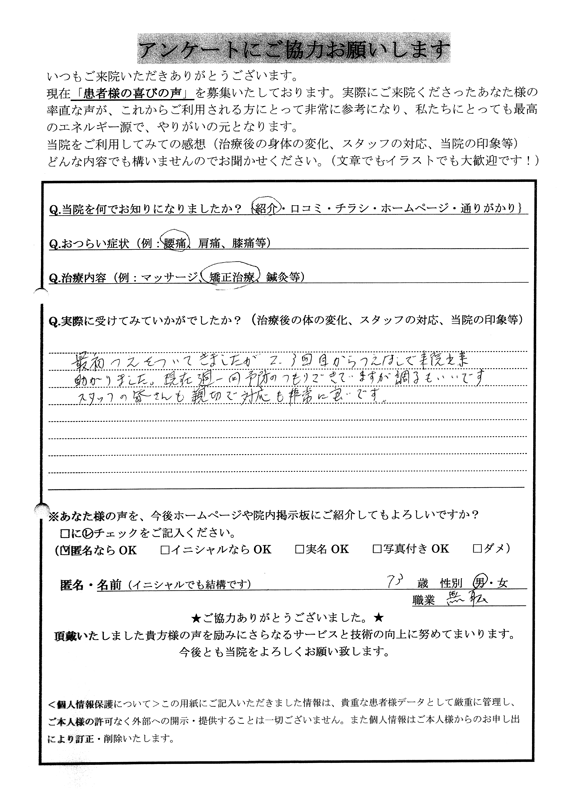 アンケートにご協力お願いします
いつもご来院いただきありがとうございます。
現在「患者様の喜びの声」を募集いたしております。実際にご来院くださったあなた様の
率直な声が、これからご利用される方にとって非常に参考になり、私たちにとっても最高
のエネルギー源で、やりがいの元となります。
当院をご利用してみての感想（治療後の身体の変化、スタッフの対応、当院の印象等）
どんな内容でも構いませんのでお聞かせください。（文章でもイラストでも大歓迎です！）
Q.当院を何でお知りになりましたか？｛紹介・口コミ・チラシ・ホームページ・通りがかり｝
Q.おつらい症状（例：腰痛、肩痛、膝痛等）
Q.治療内容（例：マッサージ、矯正治療、鍼灸等）
Q.実際に受けてみていかがでしたか？（治療後の体の変化、スタッフの対応、当院の印象等）
最初つえをついてきましたが2.3回目からつえなしで来院出来
助かりました。現在週一回予防のつもりできていますが調子もいいです
スタッフの皆さんも親切で対応も非常に良いです。
※あなた様の声を、今後ホームページや院内掲示板にご紹介してもよろしいですか？
□に☑チェックをご記入ください。
（☑匿名なら OK □イニシャルなら OK □実名 OK □写真付き OK □ダメ）
匿名・名前（イニシャルでも結構です） 73 歳 性別 男・女
職業 無職
★ご協力ありがとうございました。★
頂戴いたしました貴方様の声を励みにさらなるサービスと技術の向上に努めてまいります。
今後とも当院をよろしくお願い致します。
＜個人情報保護について＞この用紙にご記入いただきました情報は、貴重な患者様データとして厳重に管理し、
ご本人様の許可なく外部への開示・提供することは一切ございません。また個人情報はご本人様からのお申し出
により訂正・削除いたします。